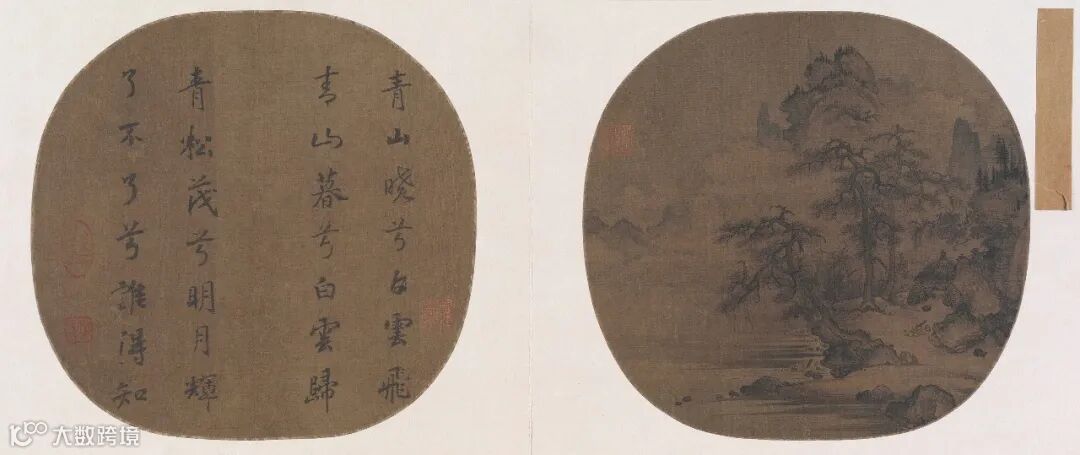 青山曉兮白雲飛
青山暮兮白雲歸
青松茂兮明月輝
了不了兮誰得知
大数跨境